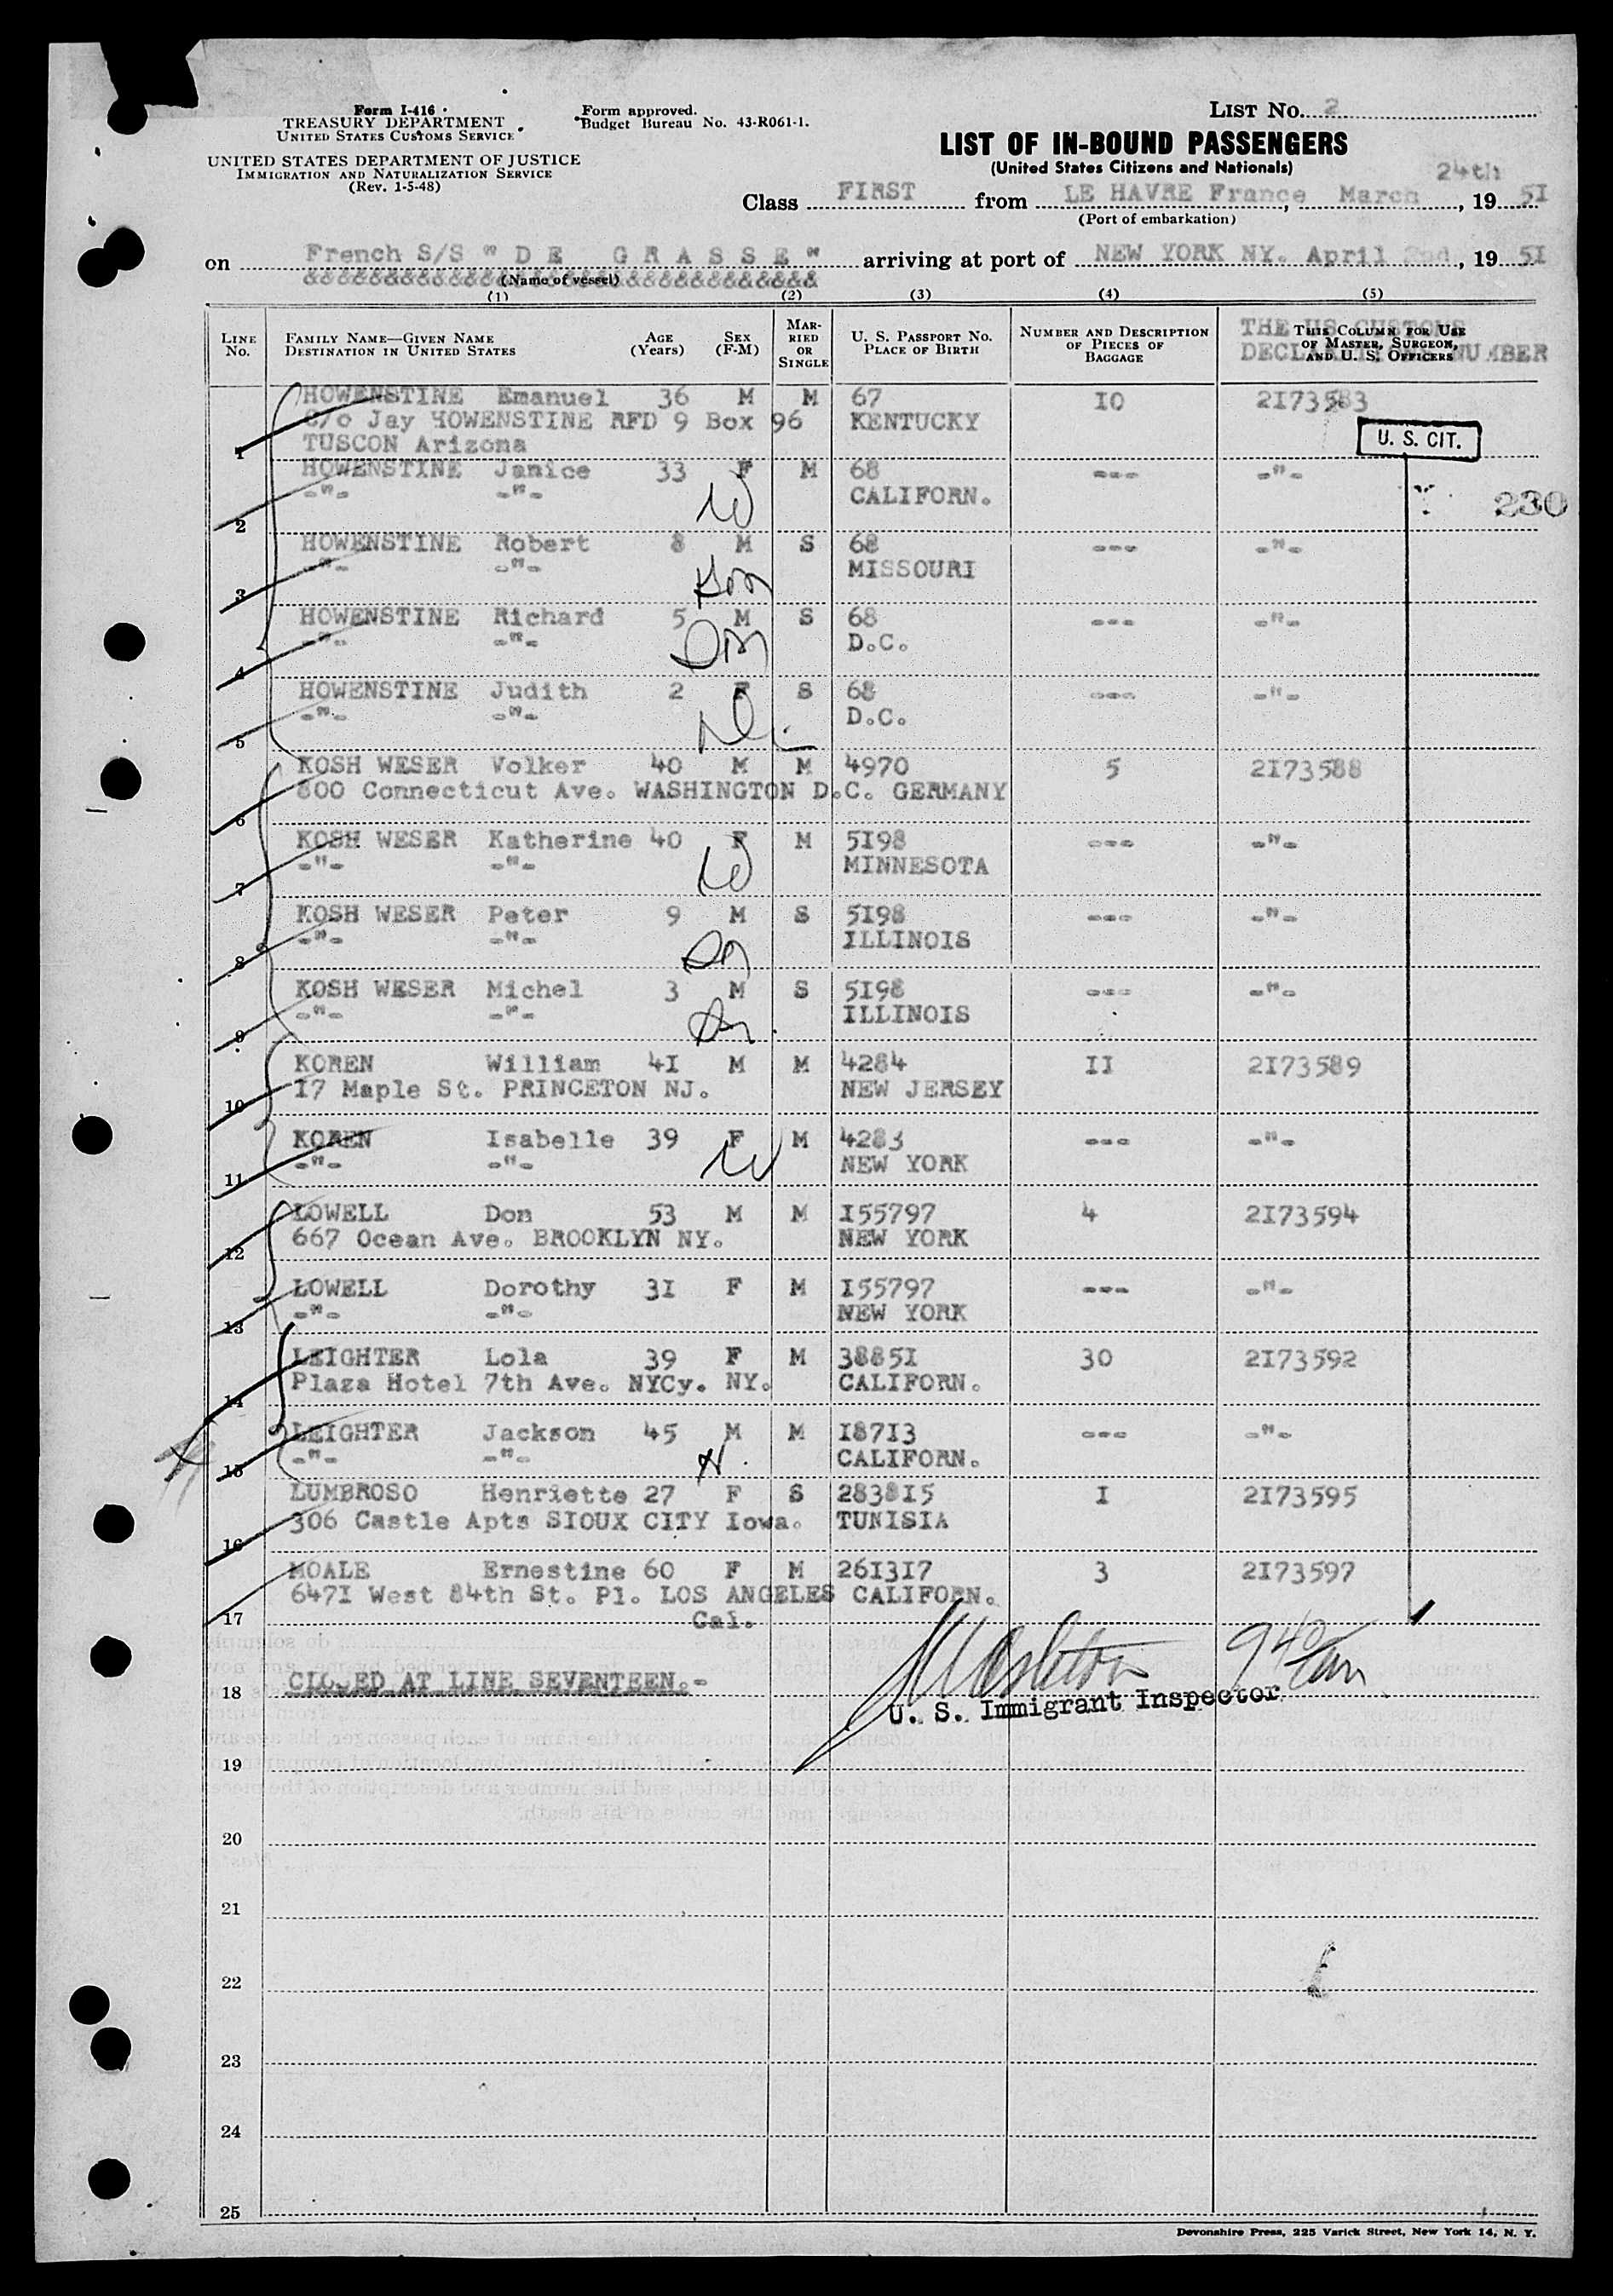 Form I-416
TREASURY DEPARTMENT
UNITED STATES CUSTOMS SERVICE
UNITED STATES DEPARTMENT OF JUSTICE
IMMIGRATION AND NATURALIZATION SERVICE
(Rev. 1-5-48)
Form approved.
Budget Bureau No. 43-R061-1.
LIST NO. 2
LIST OF IN-BOUND PASSENGERS
(United States Citizens and Nationals)
Class FIRST from LE HAVRE France, March 24th, 19 5I
(Port of embarkation)
on French S/S " D E G R A S S E " arriving at port of NEW YORK NY. April 2nd, 19 5I
&&&&&&&&&&&&&&&&&&&&&&&&&&&&&&&&
(Name of vessel)
(1) (2) (3) (4) (5)
LINE NO. FAMILY NAME—GIVEN NAME DESTINATION IN UNITED STATES AGE (YEARS) SEX (F-M) MARRIED OR SINGLE U. S. PASSPORT NO. PLACE OF BIRTH NUMBER AND DESCRIPTION OF PIECES OF BAGGAGE THIS COLUMN FOR USE OF MASTER, SURGEON, AND U. S. OFFICERS
THE US CUSTOMS
NUMBER
1 HOWENSTINE Emanuel 36 M M 67 IO 2I73583
C/o Jay HOWENSTINE RFD 9 Box 96 KENTUCKY
TUSCON Arizona
U. S. CIT.
2 HOWENSTINE Janice 33 F M 68 --- -"-
-"- -"- W CALIFORN.
230
3 HOWENSTINE Robert 8 M S 68 --- -"-
-"- -"- MISSOURI
4 HOWENSTINE Richard 5 M S 68 --- -"-
-"- -"- D.C.
5 HOWENSTINE Judith 2 F S 68 --- -"-
-"- -"- D.C.
6 KOSH WESER Volker 40 M M 4970 5 2I73588
800 Connecticut Ave. WASHINGTON D.C. GERMANY
7 KOSH WESER Katherine 40 F M 5I98 --- -"-
-"- -"- W MINNESOTA
8 KOSH WESER Peter 9 M S 5I98 --- -"-
-"- -"- ILLINOIS
9 KOSH WESER Michel 3 M S 5I98 --- -"-
-"- -"- ILLINOIS
10 KOREN William 4I M M 4284 II 2I73589
I7 Maple St. PRINCETON NJ. NEW JERSEY
11 KOREN Isabelle 39 F M 4283 --- -"-
-"- -"- W NEW YORK
12 LOWELL Don 53 M M I55797 4 2I73594
667 Ocean Ave. BROOKLYN NY. NEW YORK
13 LOWELL Dorothy 3I F M I55797 --- -"-
-"- -"- NEW YORK
14 LEIGHTER Lola 39 F M 3885I 30 2I73592
Plaza Hotel 7th Ave. NYCy. NY. CALIFORN.
15 LEIGHTER Jackson 45 M M I87I3 --- -"-
-"- -"- H. CALIFORN.
16 LUMBROSO Henriette 27 F S 2838I5 I 2I73595
306 Castle Apts SIOUX CITY Iowa. TUNISIA
17 MOALE Ernestine 60 F M 26I3I7 3 2I73597
647I West 84th St. Pl. LOS ANGELES CALIFORN.
Cal.
940 am
18 CLOSED AT LINE SEVENTEEN.-
U. S. Immigrant Inspector
19
20
21
22
23
24
25
Devonshire Press, 225 Varick Street, New York 14, N. Y.